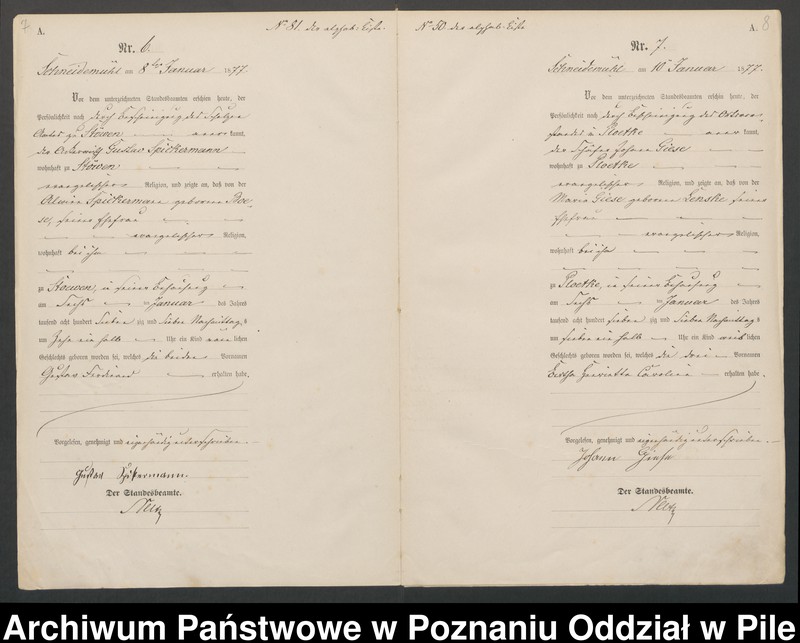 7
A.
No 81. der alphab: Liste.
Nr. 6.
Schneidemühl am 8ten Januar 1877
Vor dem unterzeichneten Standesbeamten erschien heute, der
Persönlichkeit nach durch Bescheinigung des Schulzen
Amtes zu Stöwen kannt,
der Gustav Spickermann
wohnhaft zu Stöwen
evangelischer Religion, und zeigte an, daß von der
Spickermann geborene
seiner Ehefrau
evangelischer Religion,
wohnhaft bei ihm
zu Stoewen, in seiner Behausung
am Sechs ten Januar des Jahres
tausend acht hundert sieben zig und sieben Nachmittags
um Zehn ein halb Uhr ein Kind männlichen
Geschlechts geboren worden sei, welches die beiden Vornamen
Gustav Ferdinand erhalten habe.
Vorgelesen, genehmigt und eigenhändig unterschrieben
Gustav Spickermann
Der Standesbeamte.
8
A.
No 30. der alphab. Liste
Nr. 7.
Schneidemühl am 10 Januar 1877.
Vor dem unterzeichneten Standesbeamten erschien heute, der
Persönlichkeit nach durch Bescheinigung des
zu Ploetke kannt,
der Johann Giese
wohnhaft zu Ploetke
evangelischer Religion, und zeigte an, daß von der
Maria Giese geborene Lenske seiner
Ehefrau
evangelischer Religion,
wohnhaft bei ihm
zu Ploetke, in seiner Behausung
am Sechs ten Januar des Jahres
tausend acht hundert sieben zig und sieben Nachmittags
um sieben ein halb Uhr ein Kind weiblichen
Geschlechts geboren worden sei, welches die drei Vornamen
Bertha Henriette Caroline erhalten habe.
Vorgelesen, genehmigt und eigenhändig unterschrieben
Johann Giese
Der Standesbeamte.
Archiwum Państwowe w Poznaniu Oddział w Pile